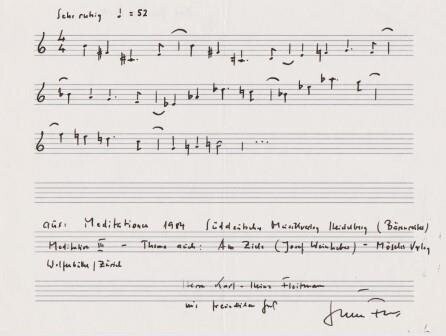 Sehr ruhig ♩ = 52
4
4
...
aus: Meditationen 1984 Süddeutscher Musikverlag Heidelberg (Bärenreiter)
Meditation III - Thema nach: Am Ziele (Josef Weinheber) - Möseler Verlag
Wolfenbüttel / Zürich
Herrn Karl-Heinz
mit freundlichem Gruß